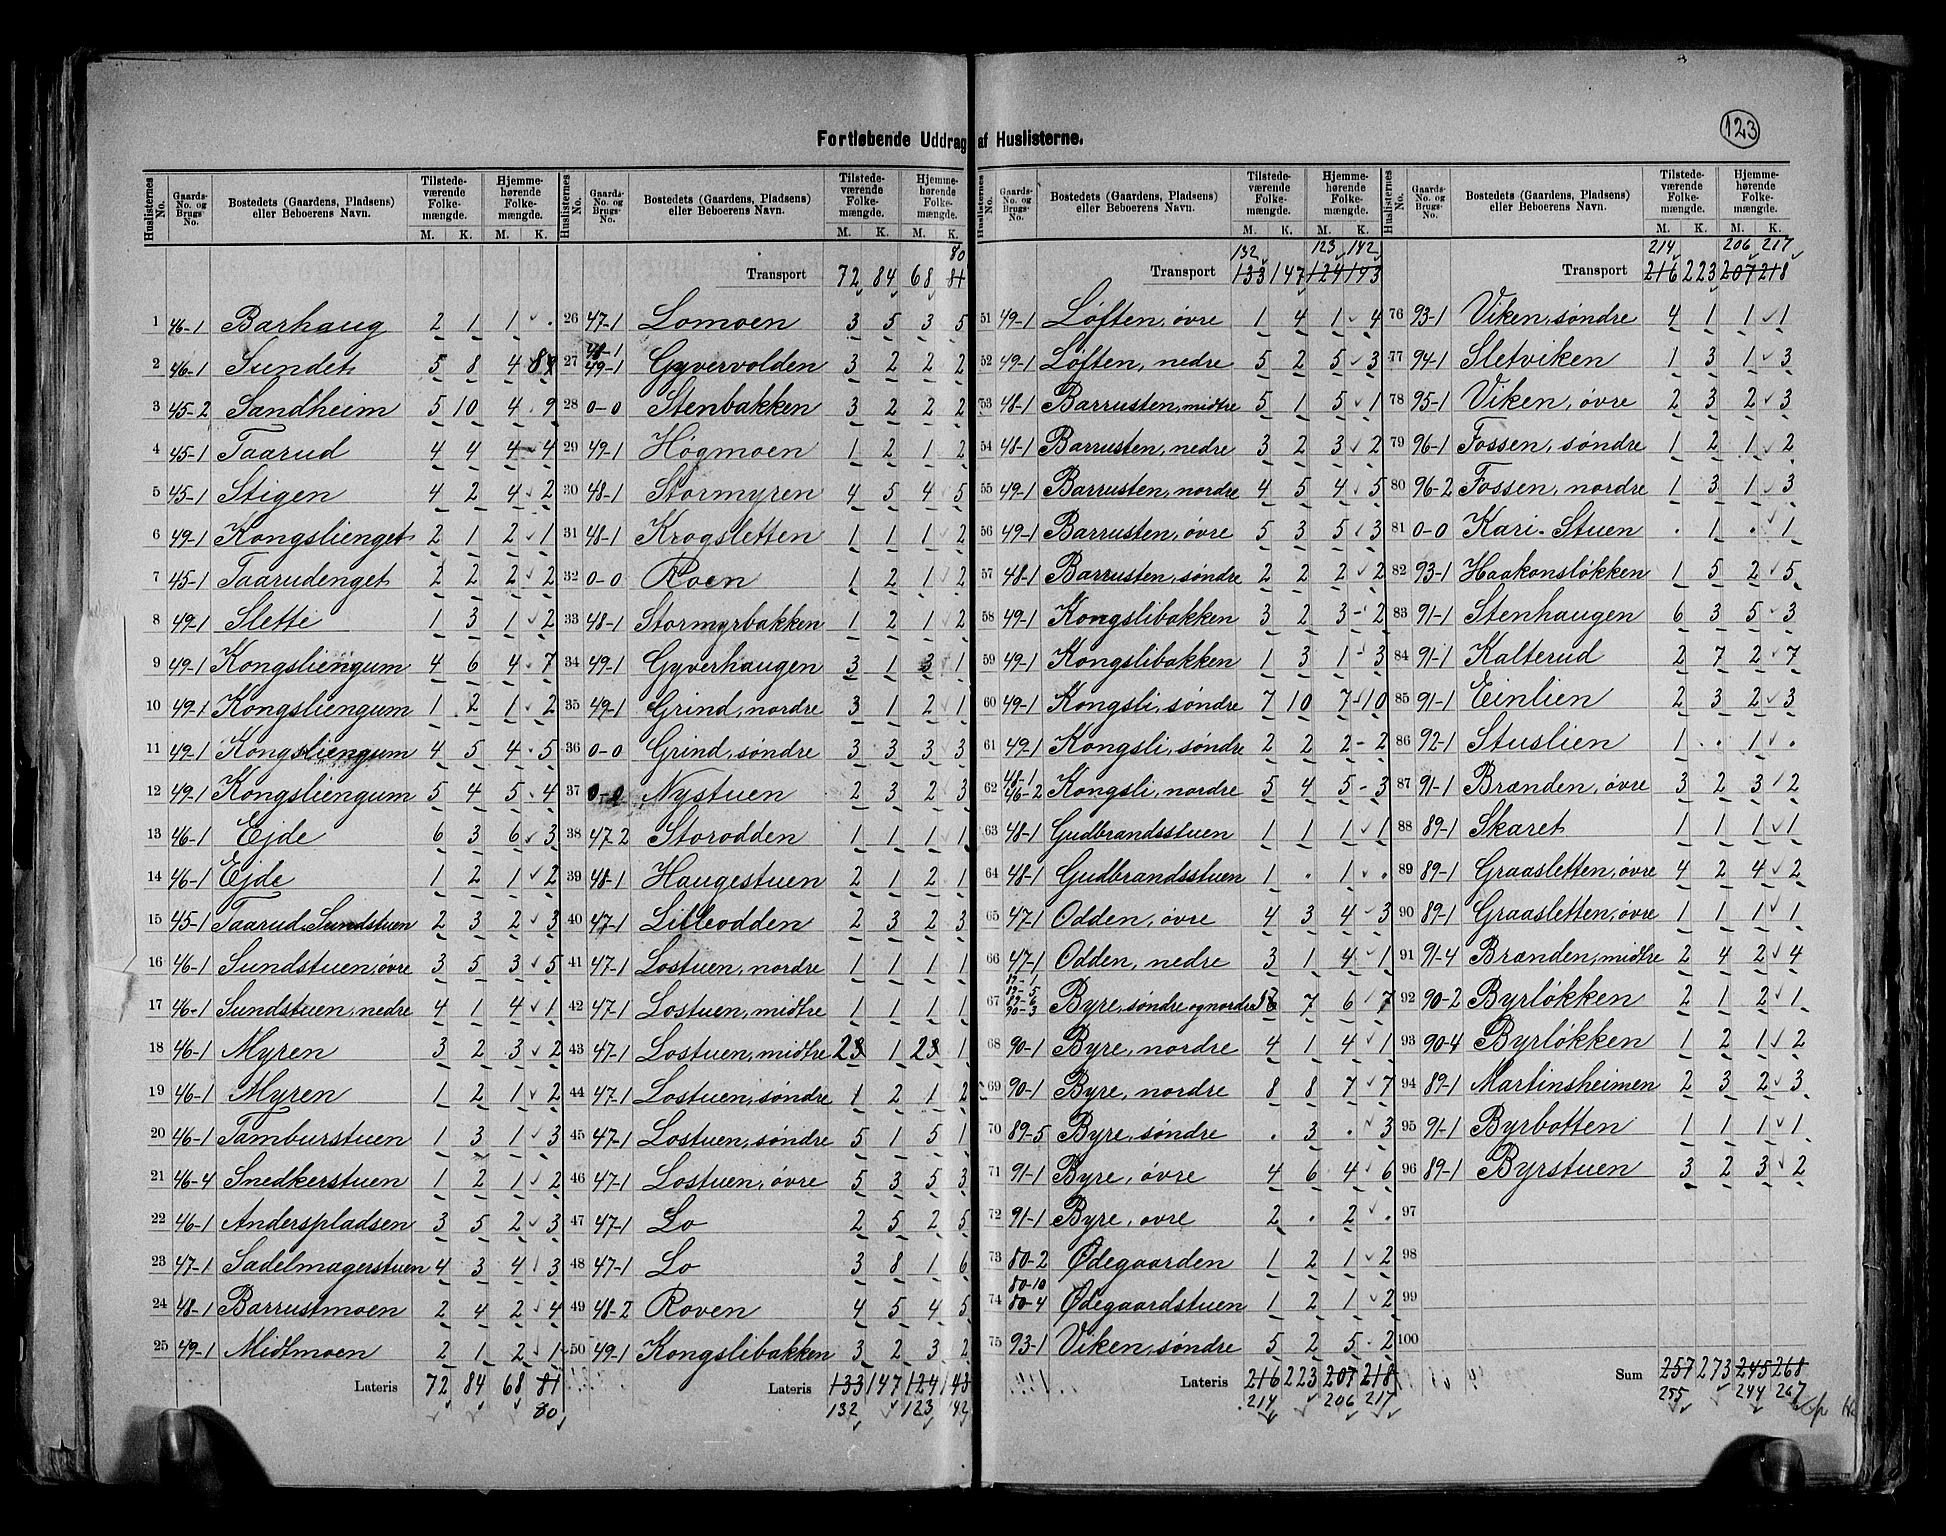 123
Fortløbende Uddrag af Huslisterne.
Huslisternes No. Gaards-No. og Brugs-No. Bostedets (Gaardens, Pladsens) eller Beboerens Navn. Tilstedeværende Folkemængde. M. K. Hjemmehørende Folkemængde. M. K.
1 46-1 Barhaug 2 1 1 .
2 46-1 Sundet 5 8 4 8
3 45-2 Sandheim 5 10 4 9
4 45-1 Taarud 4 4 4 4
5 45-1 Stigen 4 2 4 2
6 49-1 Kongslienget 2 1 2 1
7 45-1 Taarudenget 2 2 2 2
8 49-1 Slette 1 3 1 2
9 49-1 Kongsliengum 4 6 4 7
10 49-1 Kongsliengum 1 2 1 2
11 49-1 Kongsliengum 4 5 4 5
12 49-1 Kongsliengum 5 4 5 4
13 46-1 Ejde 6 3 6 3
14 46-1 Ejde 1 2 1 2
15 45-1 Taarud Sundstuen 2 3 2 3
16 46-1 Sundstuen, øvre 3 5 3 5
17 46-1 Sundstuen, nedre 4 1 4 1
18 46-1 Myren 3 2 3 2
19 46-1 Myren 1 2 1 2
20 46-1 Tamburstuen 1 3 1 3
21 46-4 Snedkerstuen 1 2 1 2
22 46-1 Anderspladsen 3 5 2 3
23 47-1 Sadelmagerstuen 4 3 4 3
24 48-1 Barrustmoen 2 4 2 4
25 49-1 Midtmoen 2 1 2 1
Lateris 72 84 68 81
80
Huslisternes No. Gaards-No. og Brugs-No. Bostedets (Gaardens, Pladsens) eller Beboerens Navn. Tilstedeværende Folkemængde. M. K. Hjemmehørende Folkemængde. M. K.
80
Transport 72 84 68 81
26 47-1 Lomoen 3 5 3 5
27 48-1 49-1 Gyvervolden 3 2 2 2
28 0-0 Stenbakken 3 2 2 2
29 49-1 Høgmoen 1 2 1 2
30 48-1 Stormyren 4 5 4 5
31 48-1 Krogsletten 1 1 1 2
32 0-0 Roen 1 2 1 2
33 48-1 Stormyrbakken 1 2 1 2
34 49-1 Gyverhaugen 3 1 3 1
35 49-1 Grind, nordre 3 1 2 1
36 0-0 Grind, søndre 3 3 3 3
37 0-0 Nystuen 2 3 2 3
38 47-2 Storodden 1 1 1 1
39 48-1 Haugestuen 2 1 2 1
40 47-1 Lilleodden 2 3 2 3
41 47-1 Lostuen, nordre 1 1 1 1
42 47-1 Lostuen, midtre 1 1 1 1
43 47-1 Lostuen, midtre 23 1 23 1
44 47-1 Lostuen, søndre 1 2 1 2
45 47-1 Lostuen, søndre 5 1 5 1
46 47-1 Lostuen, øvre 5 3 5 3
47 47-1 Lo 2 5 2 5
48 47-1 Lo 3 8 1 6
49 48-2 Roven 4 5 4 5
50 49-1 Kongslibakken 3 2 3 2
Lateris 133 147 124 143
132 123 142
Huslisternes No. Gaards-No. og Brugs-No. Bostedets (Gaardens, Pladsens) eller Beboerens Navn. Tilstedeværende Folkemængde. M. K. Hjemmehørende Folkemængde. M. K.
132 123 142
Transport 133 147 124 143
51 49-1 Løften, øvre 1 4 1 4
52 49-1 Løften, nedre 5 2 5 3
53 48-1 Barrusten, midtre 5 1 5 1
54 48-1 Barrusten, nedre 3 2 3 2
55 49-1 Barrusten, nordre 4 5 4 5
56 49-1 Barrusten, øvre 5 3 5 3
57 48-1 Barrusten, søndre 2 2 2 2
58 49-1 Kongslibakken 3 2 3 2
59 49-1 Kongslibakken 1 3 1 3
60 49-1 Kongsli, søndre 7 10 7 10
61 49-1 Kongsli, søndre 2 2 2 2
62 48-1 46-2 Kongsli, nordre 5 4 5 3
63 48-1 Gudbrandsstuen 1 1 1 1
64 48-1 Gudbrandsstuen 1 . 1 .
65 47-1 Odden, øvre 4 3 4 3
66 47-1 Odden, nedre 3 1 4 1
67 90-3 Byre, søndre og nordre 7 6 7
68 90-1 Byre, nordre 4 1 4 1
69 90-1 Byre, nordre 8 8 7 7
70 89-5 Byre, søndre . 3 . 3
71 91-1 Byre, øvre 4 6 4 6
72 91-1 Byre, øvre 2 . 2 .
73 80-2 Ødegaarden 1 2 1 2
74 80-10 80-4 Ødegaardstuen 1 2 1 2
75 93-1 Viken, søndre 5 2 5 2
Lateris 216 223 207 218
214 206 217
Huslisternes No. Gaards-No. og Brugs-No. Bostedets (Gaardens, Pladsens) eller Beboerens Navn. Tilstedeværende Folkemængde. M. K. Hjemmehørende Folkemængde. M. K.
214 206 217
Transport 216 223 207 218
76 93-1 Viken, søndre 4 1 1 1
77 94-1 Sletviken 1 3 1 3
78 95-1 Viken, øvre 2 3 2 3
79 96-1 Fossen, søndre 1 2 1 2
80 96-2 Fossen, nordre 1 3 1 3
81 0-0 Kari-Stuen . 1 . 1
82 93-1 Haakonsløkken 1 5 2 5
83 91-1 Stenhaugen 6 3 5 3
84 91-1 Kalterud 2 7 2 7
85 91-1 Einlien 2 3 2 3
86 92-1 Stuslien 1 . 1 .
87 91-1 Brænden, øvre 3 2 3 2
88 89-1 Skaret 1 1 1 1
89 89-1 Graasletten, øvre 4 2 4 2
90 89-1 Graasletten, øvre 1 1 1 1
91 91-4 Brænden, midtre 2 4 2 4
92 90-2 Byrløkken 2 1 2 1
93 90-4 Byrløkken 1 2 1 2
94 89-1 Martinsheimen 2 3 2 3
95 91-1 Byrbotten 1 1 1 1
96 89-1 Byrstuen 3 2 3 2
97
98
99
100
Sum 257 273 245 268
255 244 267